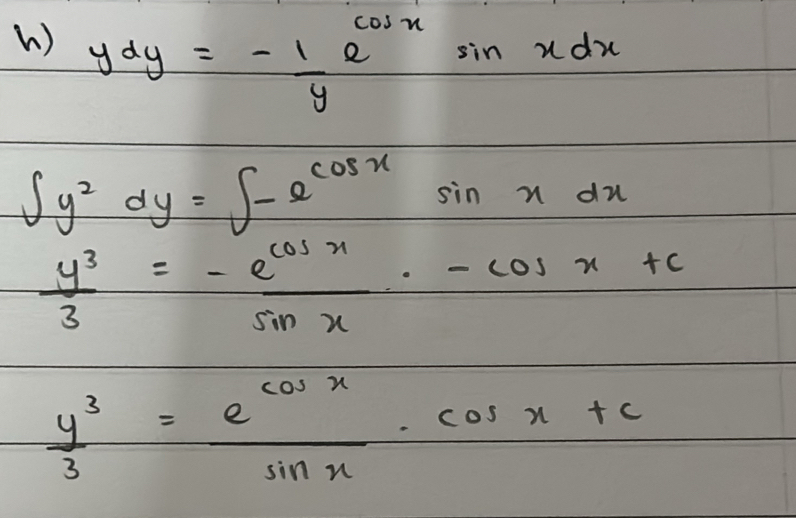 h) y dy = - 1/y e^(cos x) sin x dx
∫ y² dy = ∫ - e^(cos x) sin x dx
y³/3 = - e^(cos x)/sin x . - cos x + c
y³/3 = e^(cos x)/sin x . cos x + c